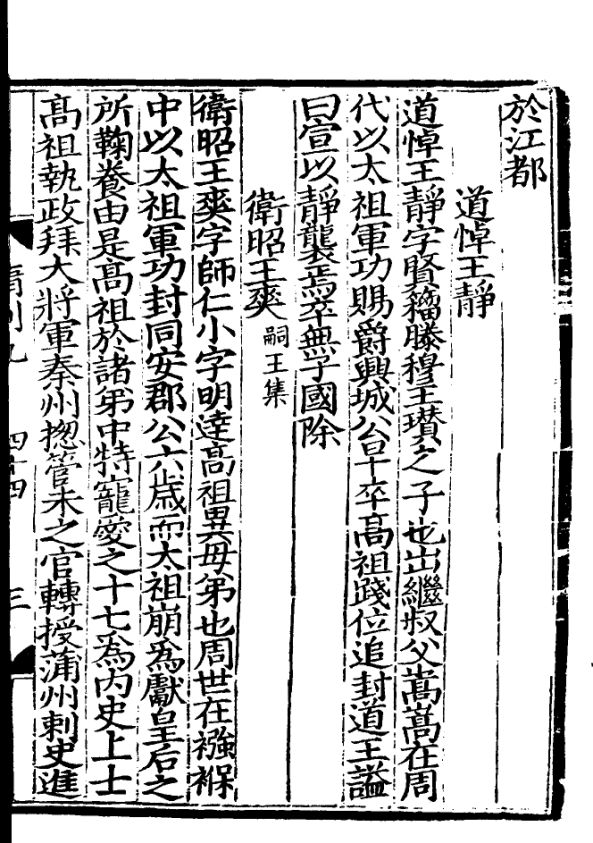 於江都
道悼王靜
道悼王靜字賢籀滕穆王瓚之子也出繼叔父嵩嵩在周
代以太祖軍功賜爵興城公早卒髙祖踐位追封道王謚
曰宣以靜襲焉卒無子國除
衛昭王爽 嗣王集
衛昭王爽字師仁小字明逹髙祖異母弟也周世在襁褓
中以太祖軍功封同安郡公六歳而太祖崩爲獻皇后之
所鞠養由是髙祖於諸弟中特寵愛之十七為内史上士
髙祖執政拜大將軍秦州揔管未之官轉授蒲州刺史進
隋列九 四十四 三